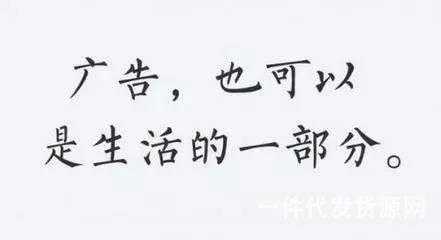 广告，也可以
是生活的一部分。
一件代发货源网